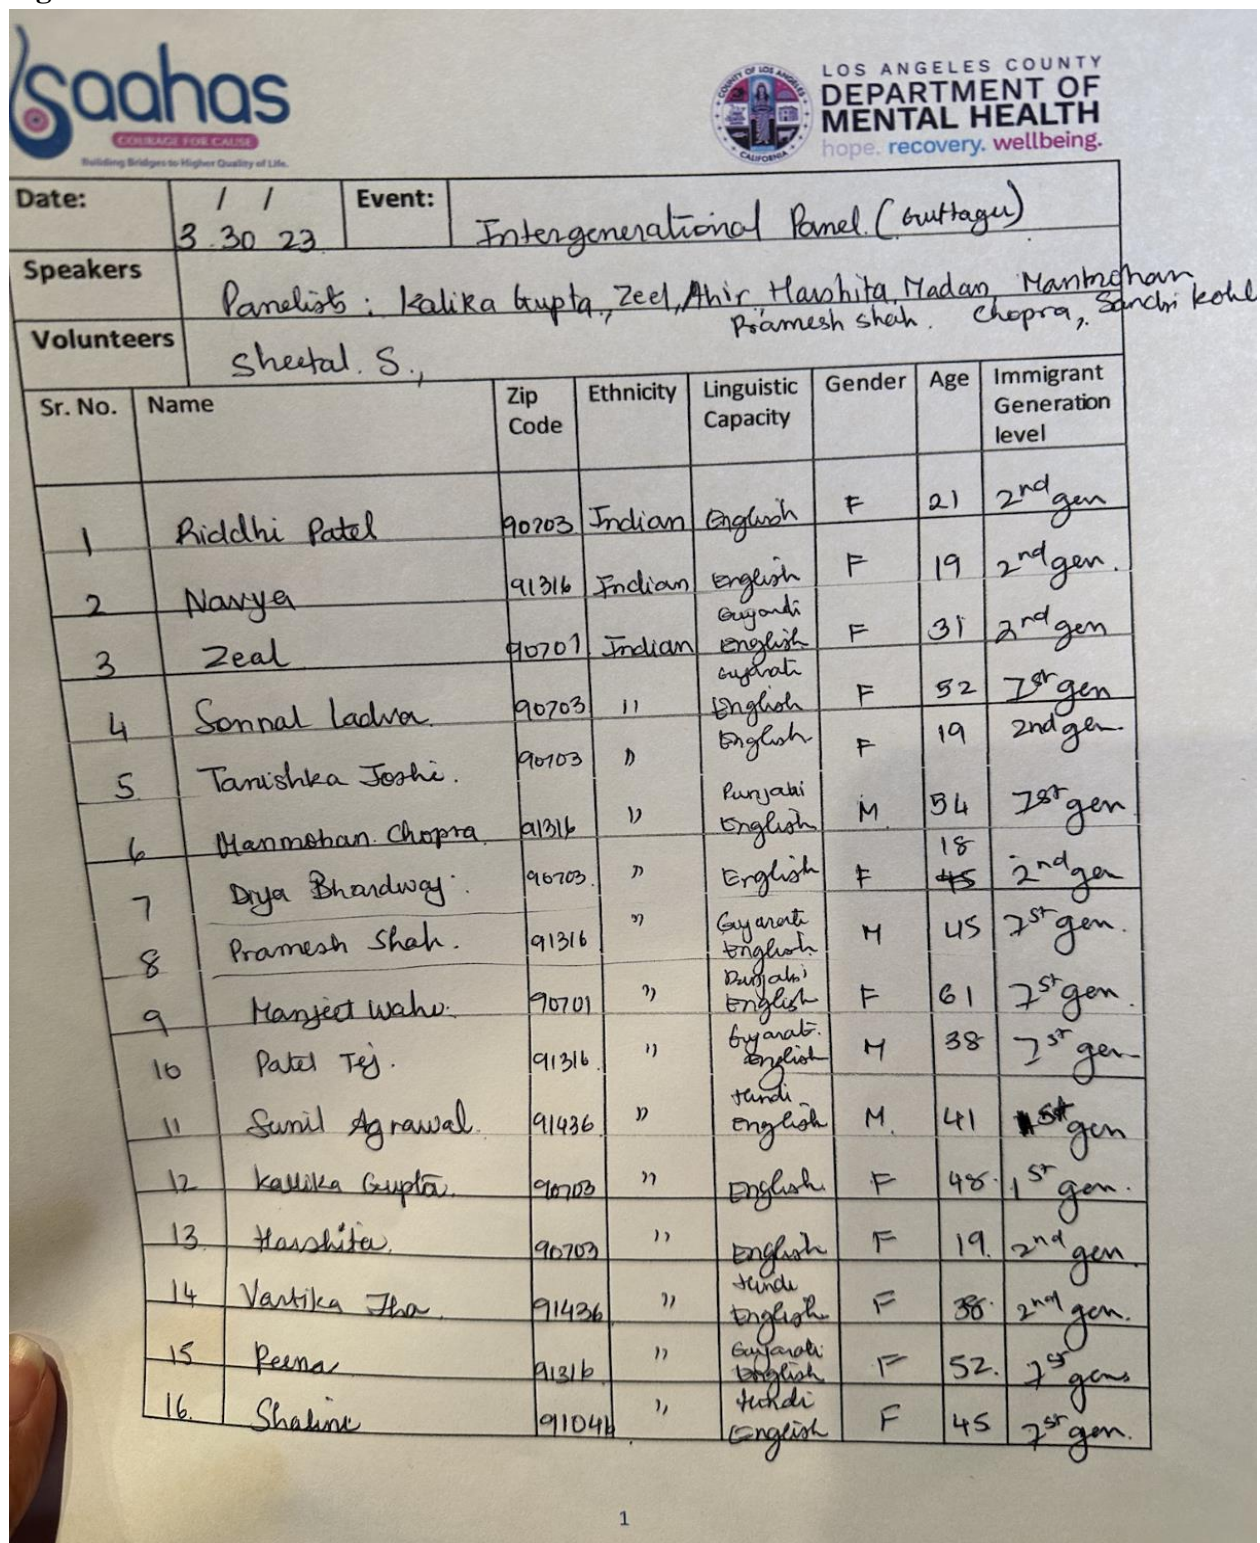 Saahas
COURAGE FOR CAUSE
Building Bridges to Higher Quality of Life.
LOS ANGELES COUNTY
DEPARTMENT OF
MENTAL HEALTH
hope. recovery. wellbeing.
COUNTY OF LOS ANGELES
CALIFORNIA
Date: / / 3.30 23 Event: Intergenerational Panel. (Guftagu)
Speakers Panelists: Kalika Gupta, Zeel, Ahir Harshita, Madan, Manmohan
Pramesh Shah. Chopra, Sanchi Kohl
Volunteers Sheetal. S.,
Sr. No. Name Zip Code Ethnicity Linguistic Capacity Gender Age Immigrant Generation level
1 Riddhi Patel 90703 Indian English F 21 2nd gen
2 Navya 91316 Indian English F 19 2nd gen.
3 Zeal 90701 Indian Gujarati English F 31 2nd gen
4 Sonnal Ladva 90703 " Gujarati English F 52 1st gen
5. Tanishka Joshi. 90703 " English F 19 2nd gen
6 Manmohan. Chopra 91316 " Punjabi English M 54 1st gen
7 Bhardwaj. 90703. " English F 18 45 2nd gen
8 Pramesh Shah. 91316 " Gujarati English M 45 1st gen.
9 Manjeet 90701 " Punjabi English F 61 1st gen.
10 Patel Tej. 91316. " Gujarati. English M 38 1st gen
11 Sunil Agrawal. 91436 " Hindi English M. 41 1st gen
12 Kallika Gupta. 90703 " English. F 48. 1st gen.
13. Harshita. 90703 " English F 19. 2nd gen.
14 Vartika Jha 91436 " Hindi English F 38. 2nd gen.
15 Reena 91316 " Gujarati English F 52. 1st gen
16. Shaline " Hindi English F 45 1st gen.
1